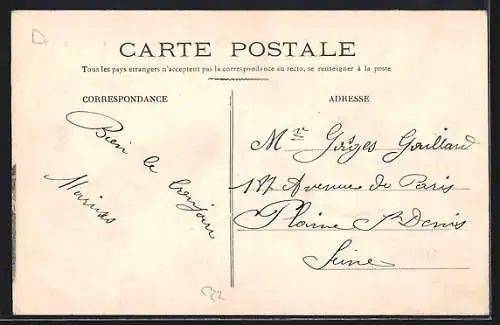 CARTE POSTALE
Tous les pays etrangers n'acceptent pas la correspondance au recto, se renseigner à la poste
CORRESPONDANCE
ADRESSE
Bien le bonjour
Marius
Mr Georges Gaillard
Avenue de Paris
Plaine St Denis
Seine